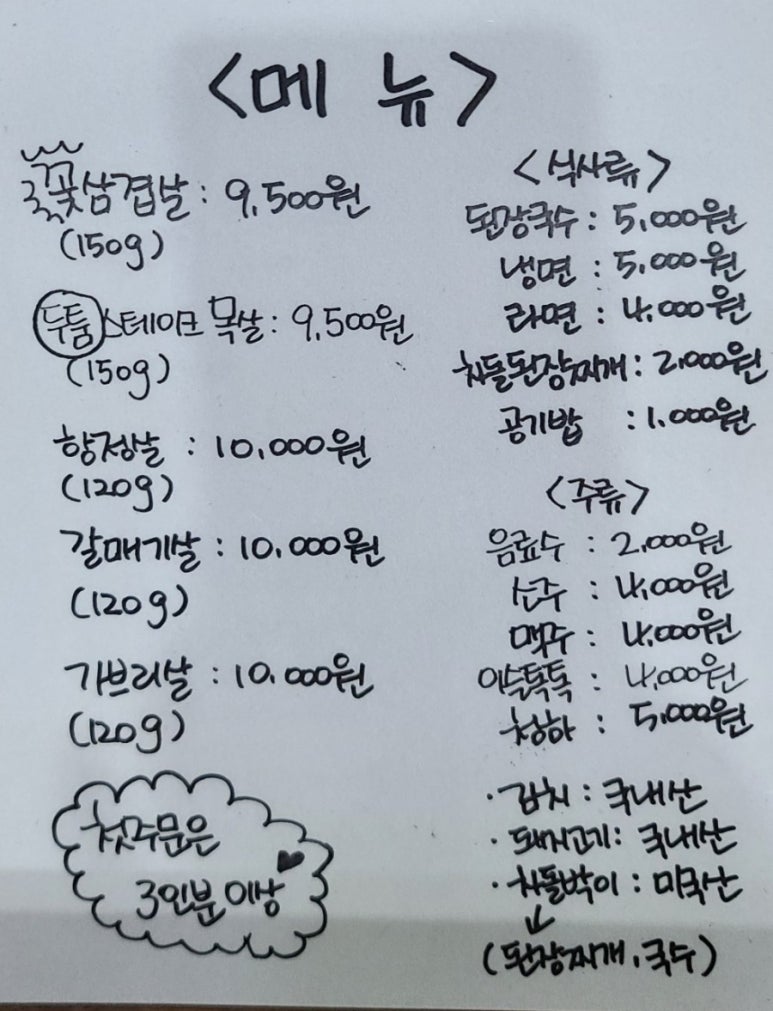 <메 뉴>
꽃삼겹살 : 9,500원
(150g)
두툼 스테이크 목살 : 9,500원
(150g)
항정살 : 10,000원
(120g)
갈매기살 : 10,000원
(120g)
가브리살 : 10,000원
(120g)
첫주문은
3인분 이상
<식사류>
된장국수 : 5,000원
냉면 : 5,000원
라면 : 4,000원
차돌된장찌개 : 2,000원
공기밥 : 1,000원
<주류>
음료수 : 2,000원
소주 : 4,000원
맥주 : 4,000원
이슬톡톡 : 4,000원
청하 : 5,000원
· 김치 : 국내산
· 돼지고기 : 국내산
· 차돌박이 : 미국산
(된장찌개, 국수)